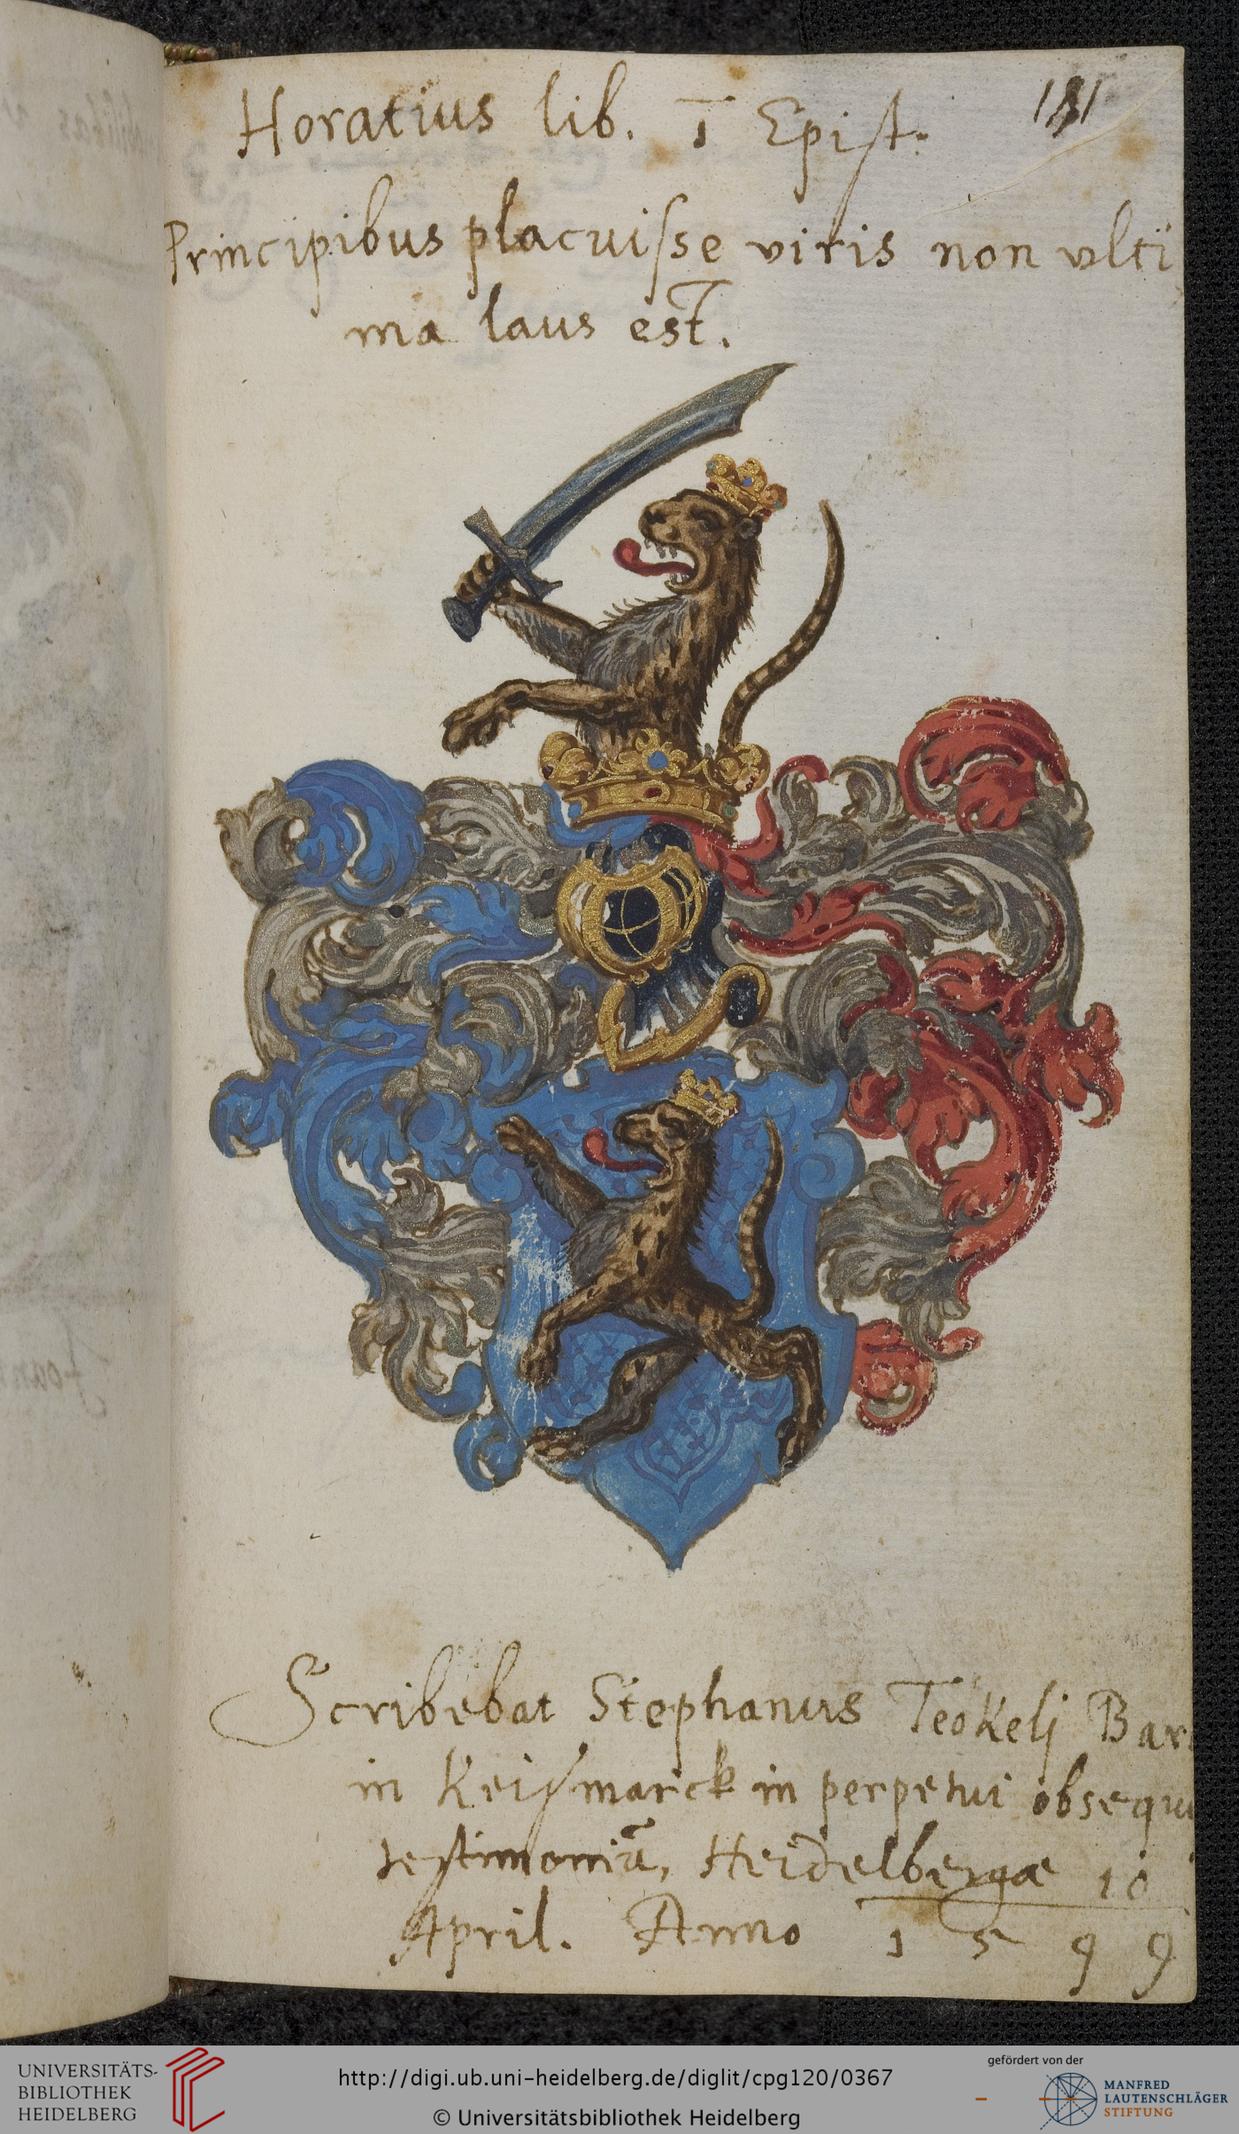 Horatius lib. 1 Epist. 181
Principibus placuiſse viris non vlti
ma laus est.
Scribebat Stephanus Teökelj Bar
in Keiſmarck in perpetui obsequi
teſtimoniũ, Heidelbergæ 10
April. Anno 1599
UNIVERSITÄTS-
BIBLIOTHEK
HEIDELBERG
http://digi.ub.uni-heidelberg.de/diglit/cpg120/0367
© Universitätsbibliothek Heidelberg
gefördert von der
MANFRED
LAUTENSCHLÄGER
STIFTUNG